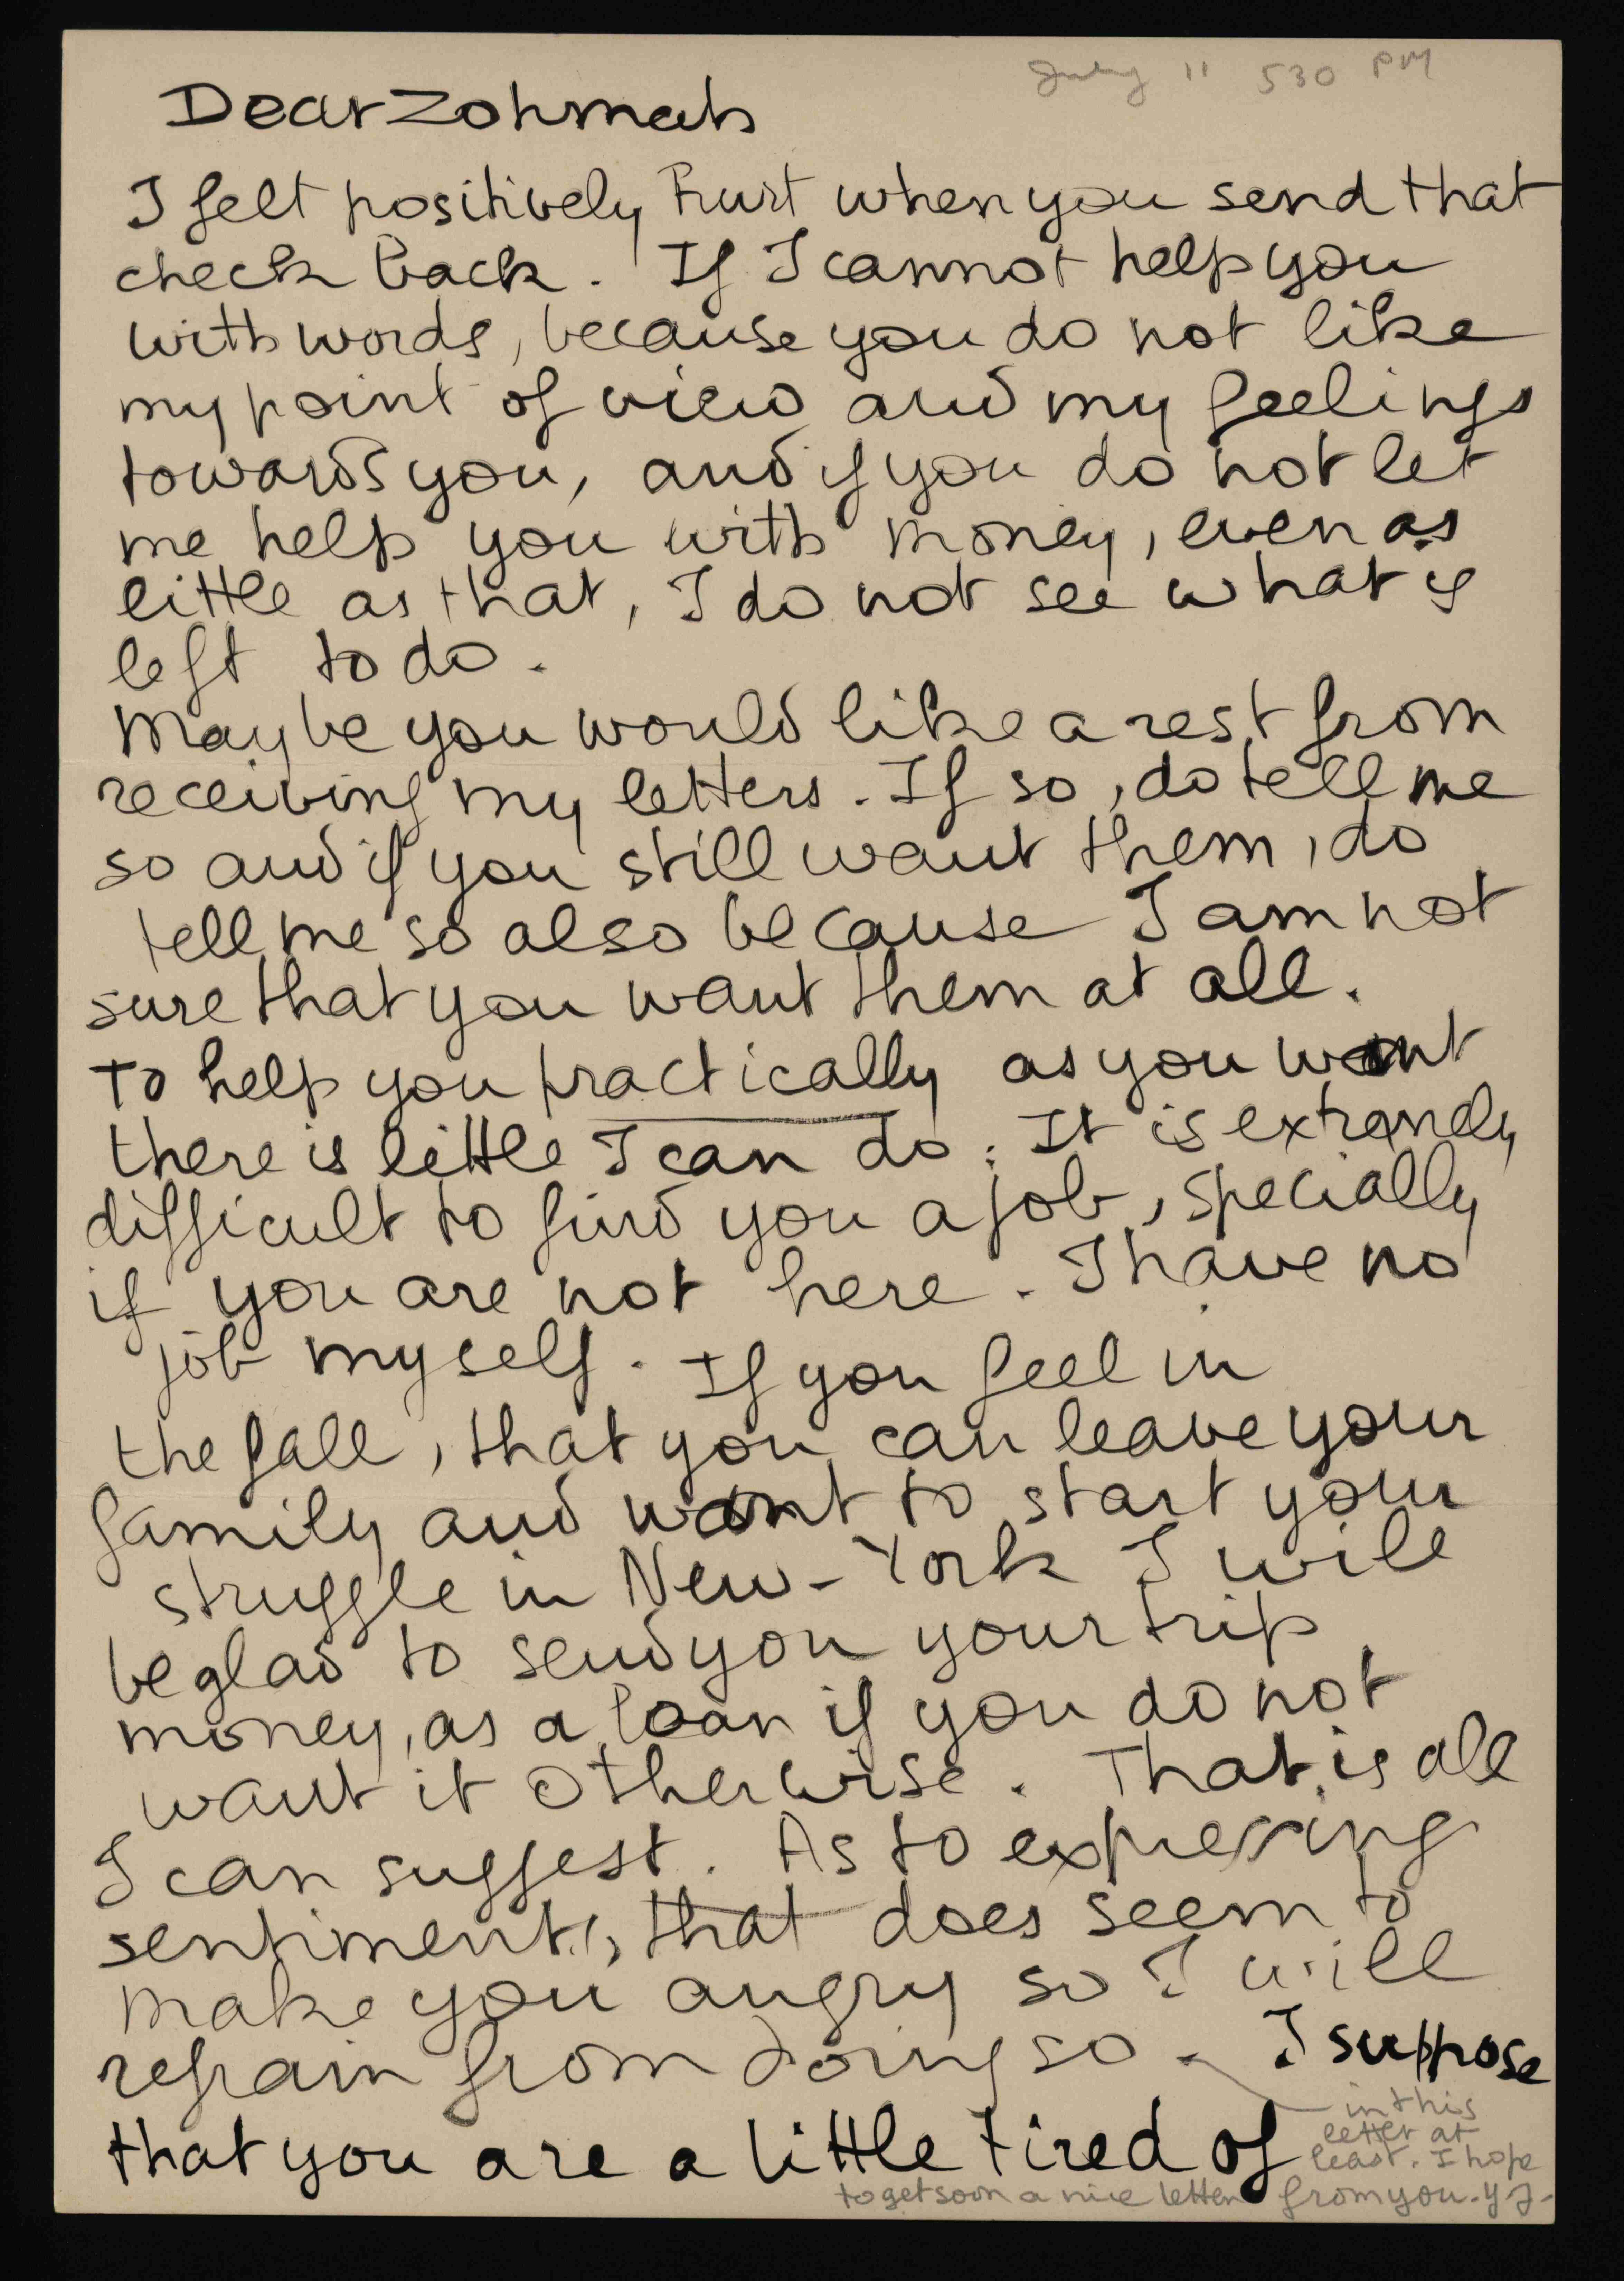 July 11 530 PM
Dear Zohmah
I felt positively hurt when you send that
check back. If I cannot help you
with words, because you do not like
my point of view and my feelings
towards you, and if you do not let
me help you with money, even as
little as that, I do not see what is
left to do.
Maybe you would like a rest from
receiving my letters. If so, do tell me
so and if you still want them, do
tell me so also because I am not
sure that you want them at all.
To help you practically as you want
there is little I can do. It is extremely
difficult to find you a job, specially
if you are not here. I have no
job myself. If you feel in
the fall, that you can leave your
family and want to start your
struggle in New-York I will
be glad to send you your trip
money, as a loan if you do not
want it otherwise. That is all
I can suggest. As to expressing
sentiments, that does seem to
make you angry so I will
refrain from doing so. I suppose
that you are a little tired of
in this
letter at
least. I hope
to get soon a nice letter from you. YJ.